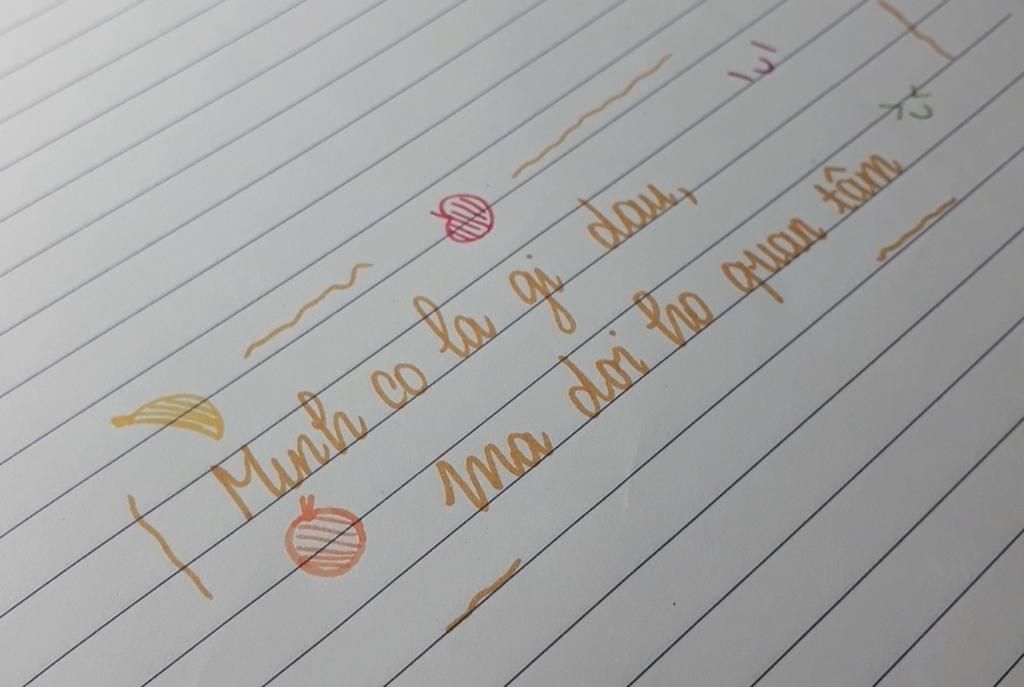 Minh co la gi dau,
ma doi ho quan tâm